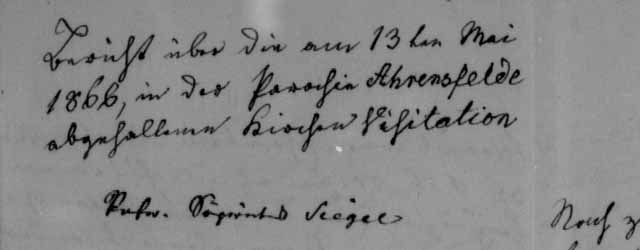 Bericht über die am 13ten Mai
1866, in der Parochie Ahrensfelde
abgehaltenen Kirchen Visitation
Siegel
Noch